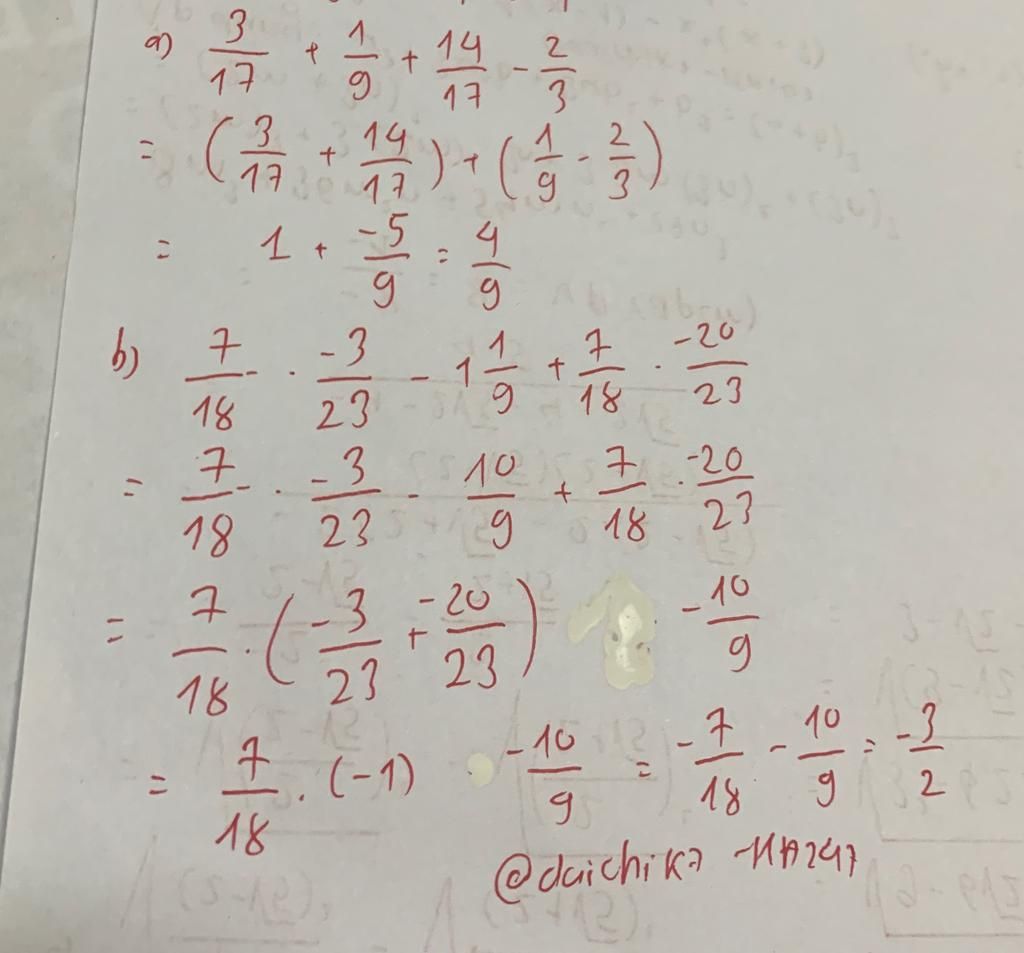 a) 3/17 + 1/9 + 14/17 - 2/3
= (3/17 + 14/17) + (1/9 - 2/3)
= 1 + -5/9 = 4/9
b) 7/18 . -3/23 - 1 1/9 + 7/18 . -20/23
= 7/18 . -3/23 - 10/9 + 7/18 . -20/23
= 7/18 . (-3/23 + -20/23) - 10/9
= 7/18 . (-1) - 10/9 = -7/18 - 10/9 = -3/2
@daichik7